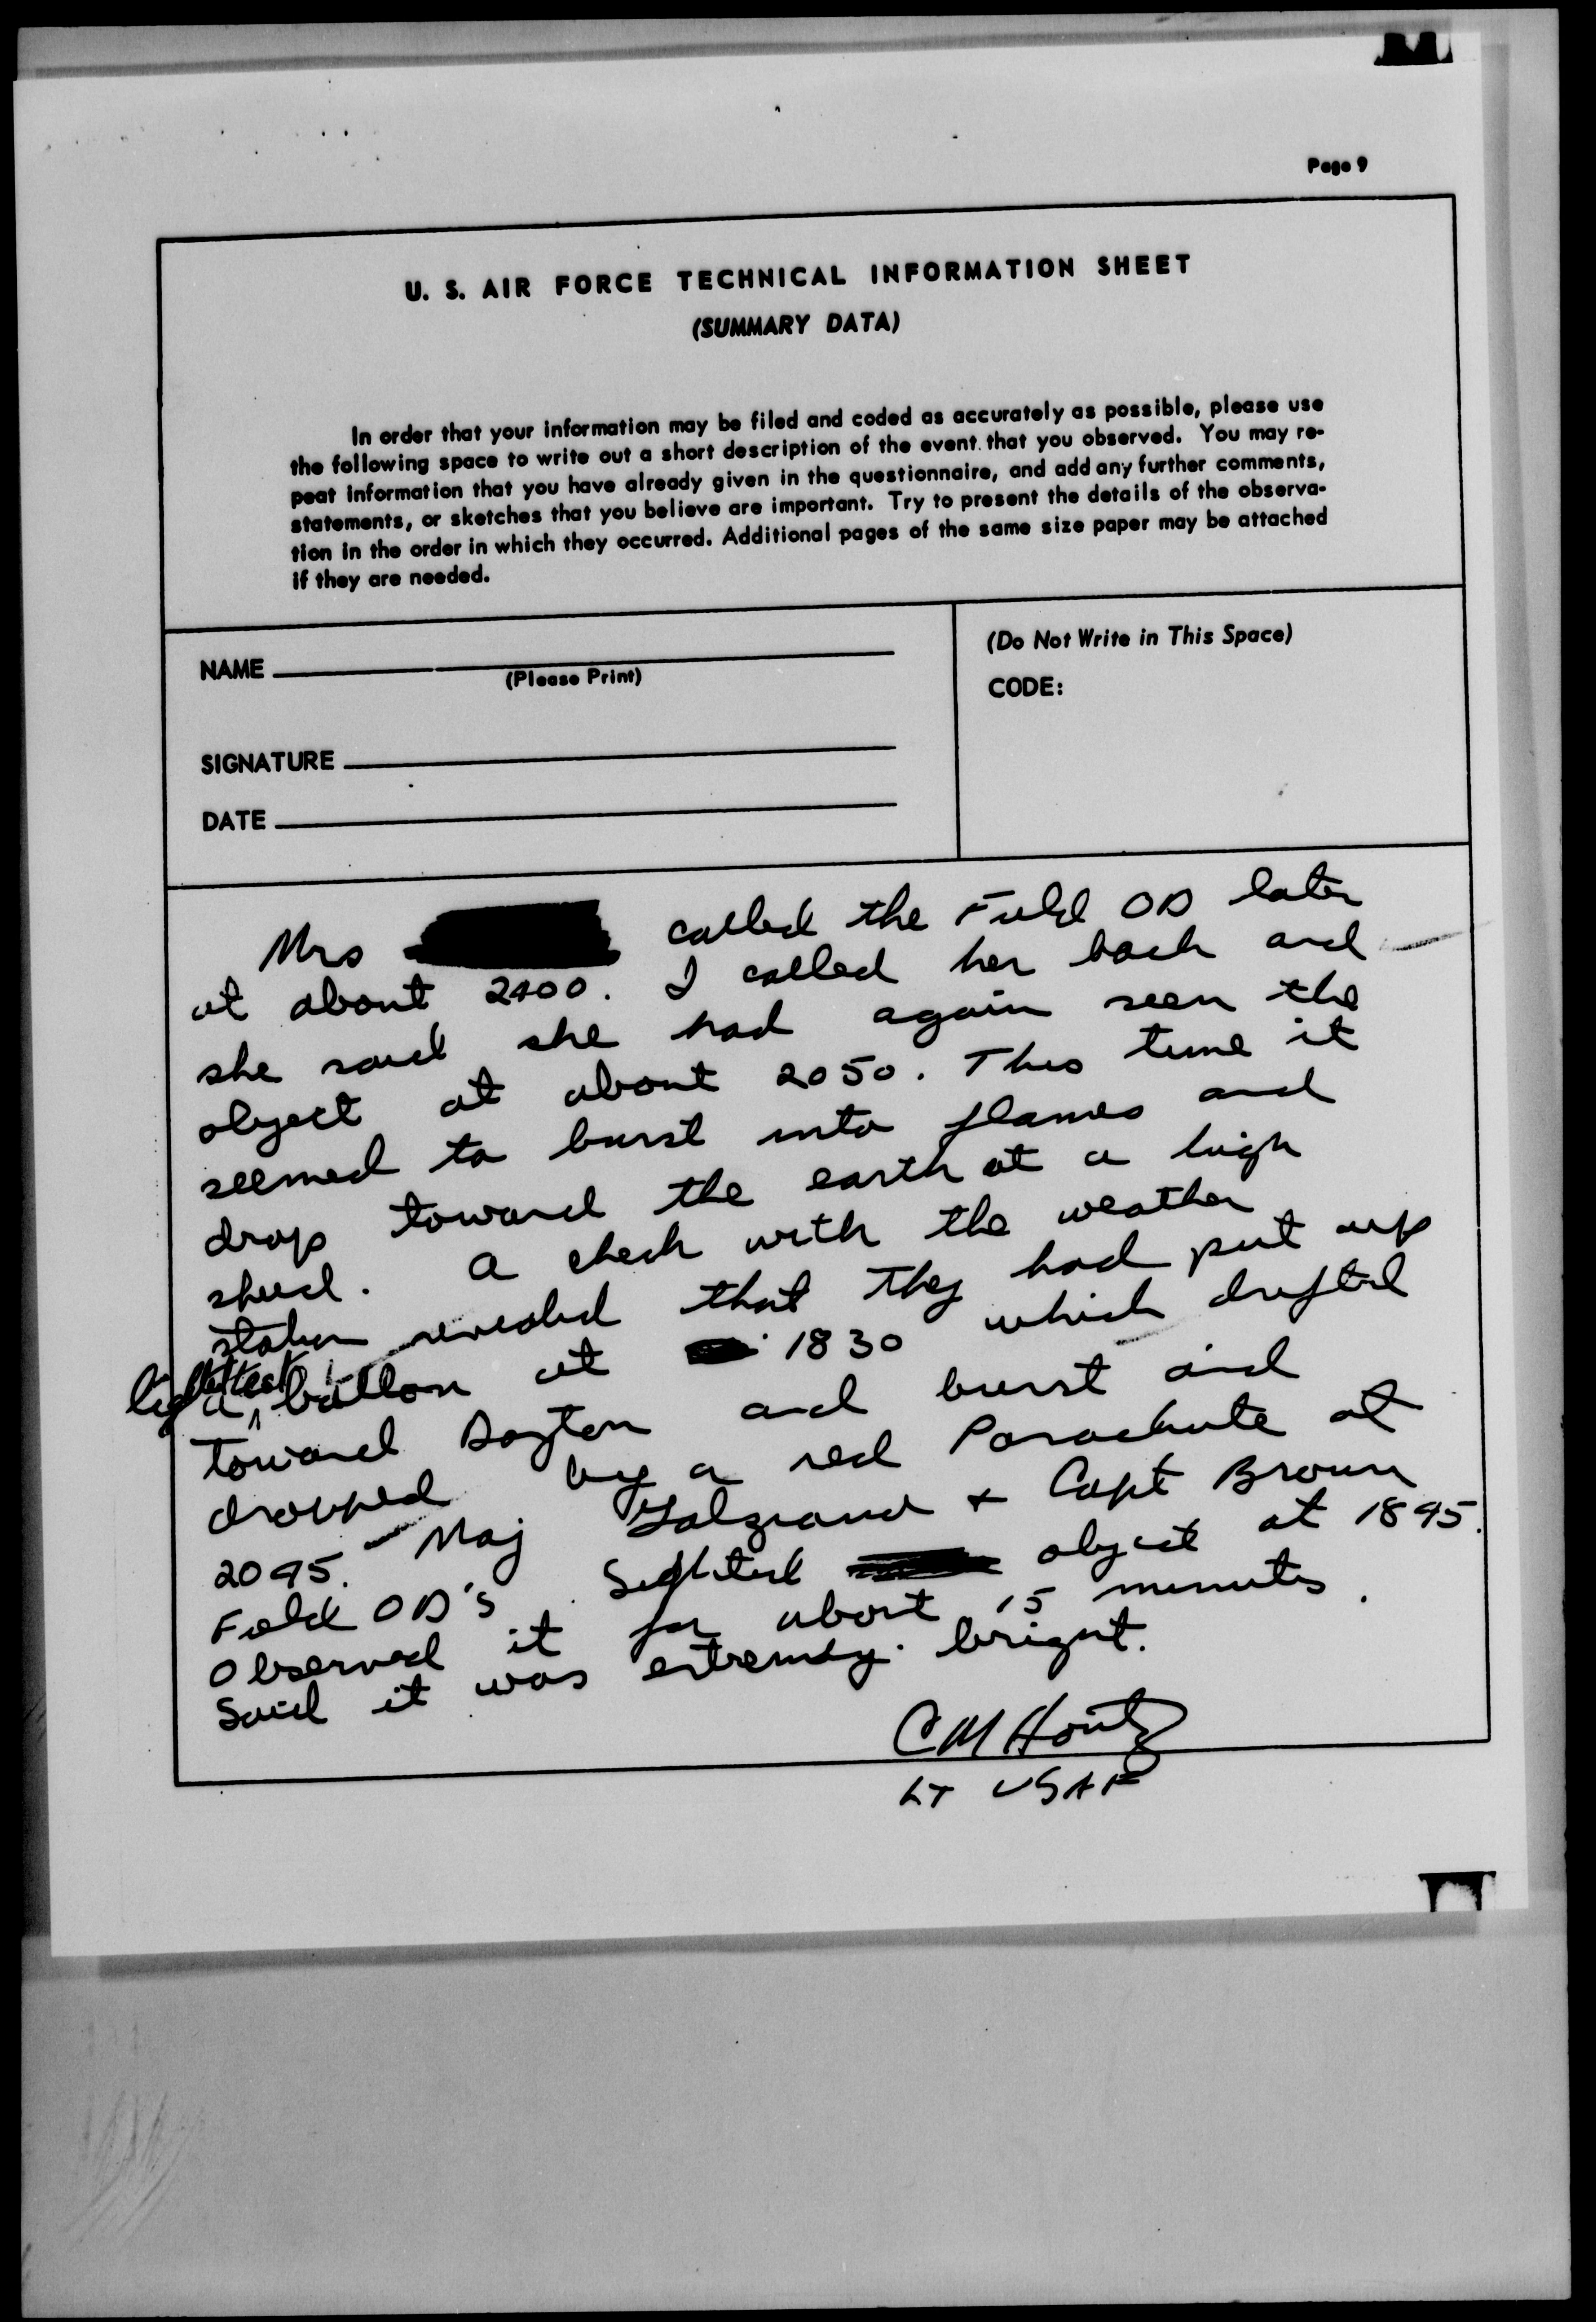 Page 9
U. S. AIR FORCE TECHNICAL INFORMATION SHEET
(SUMMARY DATA)
In order that your information may be filed and coded as accurately as possible, please use
the following space to write out a short description of the event that you observed. You may re-
peat information that you have already given in the questionnaire, and add any further comments,
statements, or sketches that you believe are important. Try to present the details of the observa-
tion in the order in which they occurred. Additional pages of the same size paper may be attached
if they are needed.
NAME
(Please Print)
SIGNATURE
DATE
(Do Not Write in This Space)
CODE:
Mrs called the Field OD later
at about 2400. I called her back and
she said she had again seen the
object at about 2050. This time it
seemed to burst into flames and
drop toward the earth at a high
speed. A check with the weather
station revealed that they had put up
a lighted ballon at 1830 which drifted
toward Dayton and burst and
dropped by a red Parachute at
2045. Maj & Capt Brown
Field OD's Sighted object at 1845.
Observed it for about 15 minutes.
Said it was extremely bright.
C M Hontz
LT USAF